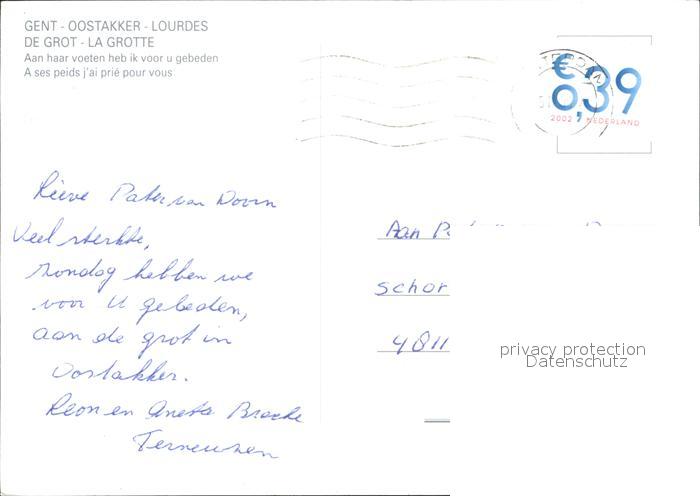 GENT - OOSTAKKER - LOURDES
DE GROT - LA GROTTE
Aan haar voeten heb ik voor u gebeden
A ses peids j'ai prié pour vous
€ 0,39
2002 NEDERLAND
Lieve Pater van Doorn
Veel sterkte,
zondag hebben we
voor U gebeden,
aan de grot in
Oostakker.
Leon en Aneta
Terneuzen
Aan P
schor
4811
privacy protection
Datenschutz